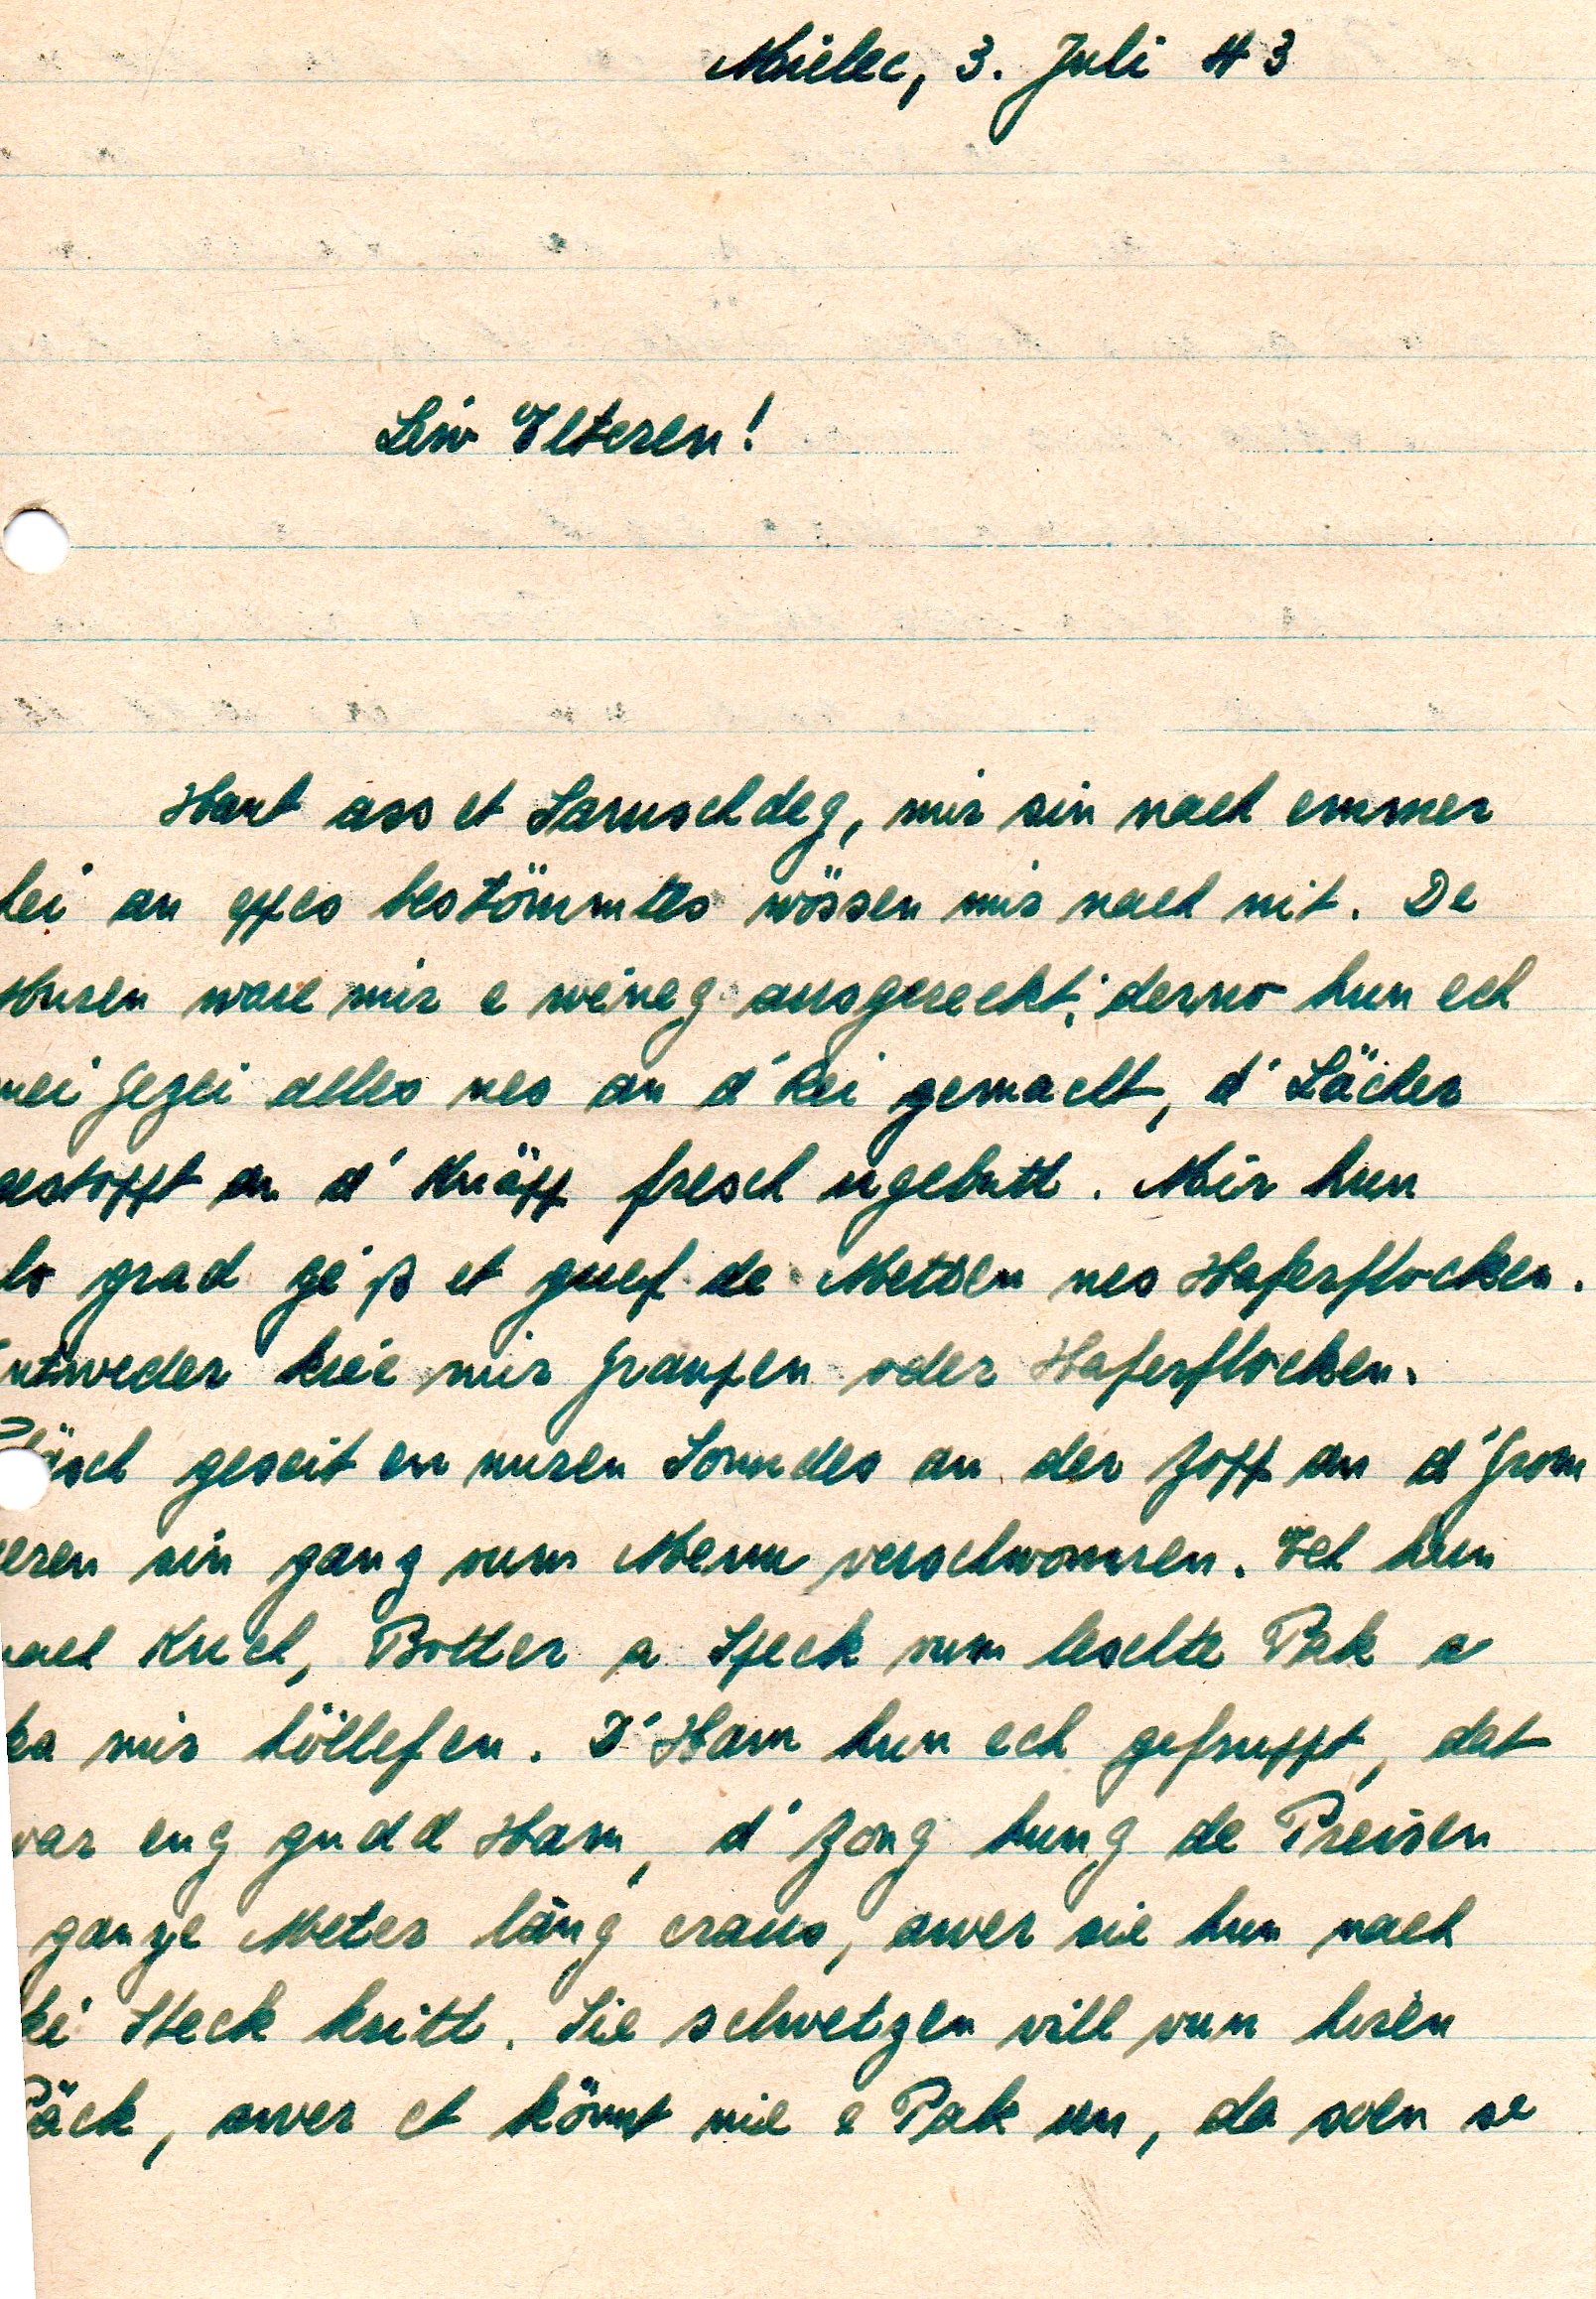 Mielec, 3. Juli 43
Léiw Elteren!
Haut ass et Samschdeg, mir sin nach emmer
hei an eppes bestömmtes wössen mir nach nit. De
Muren ware mir e wéneg ausgereckt; derno hun ech
mei Gezei alles nes an d'Rei gemacht, d'Lächer
gestoppt an d'Knäpp fresch ugebutt. Mir hun
lo grad giéß et guef de Metten nes Haferflocken.
Entweder kréie mir Graupen oder Haferflocken.
Fläsch geseit en nuren Sonndes an der Zopp an d'Grom
peren sin ganz vum Menu verschwonnen. Ech hun
nach Kuch, Botter a Speck vum leschte Pak a
ka mir höllefen. D'Ham hun ech gefruppt, dat
war eng gudd Ham, d'Zong hung de Preisen
ganze Meter läng eraus, awer sie hun nach
kei Steck kritt. Sie schwetzen vill vun hiren
Päck, awer et könnt nie e Pak un, da soen se